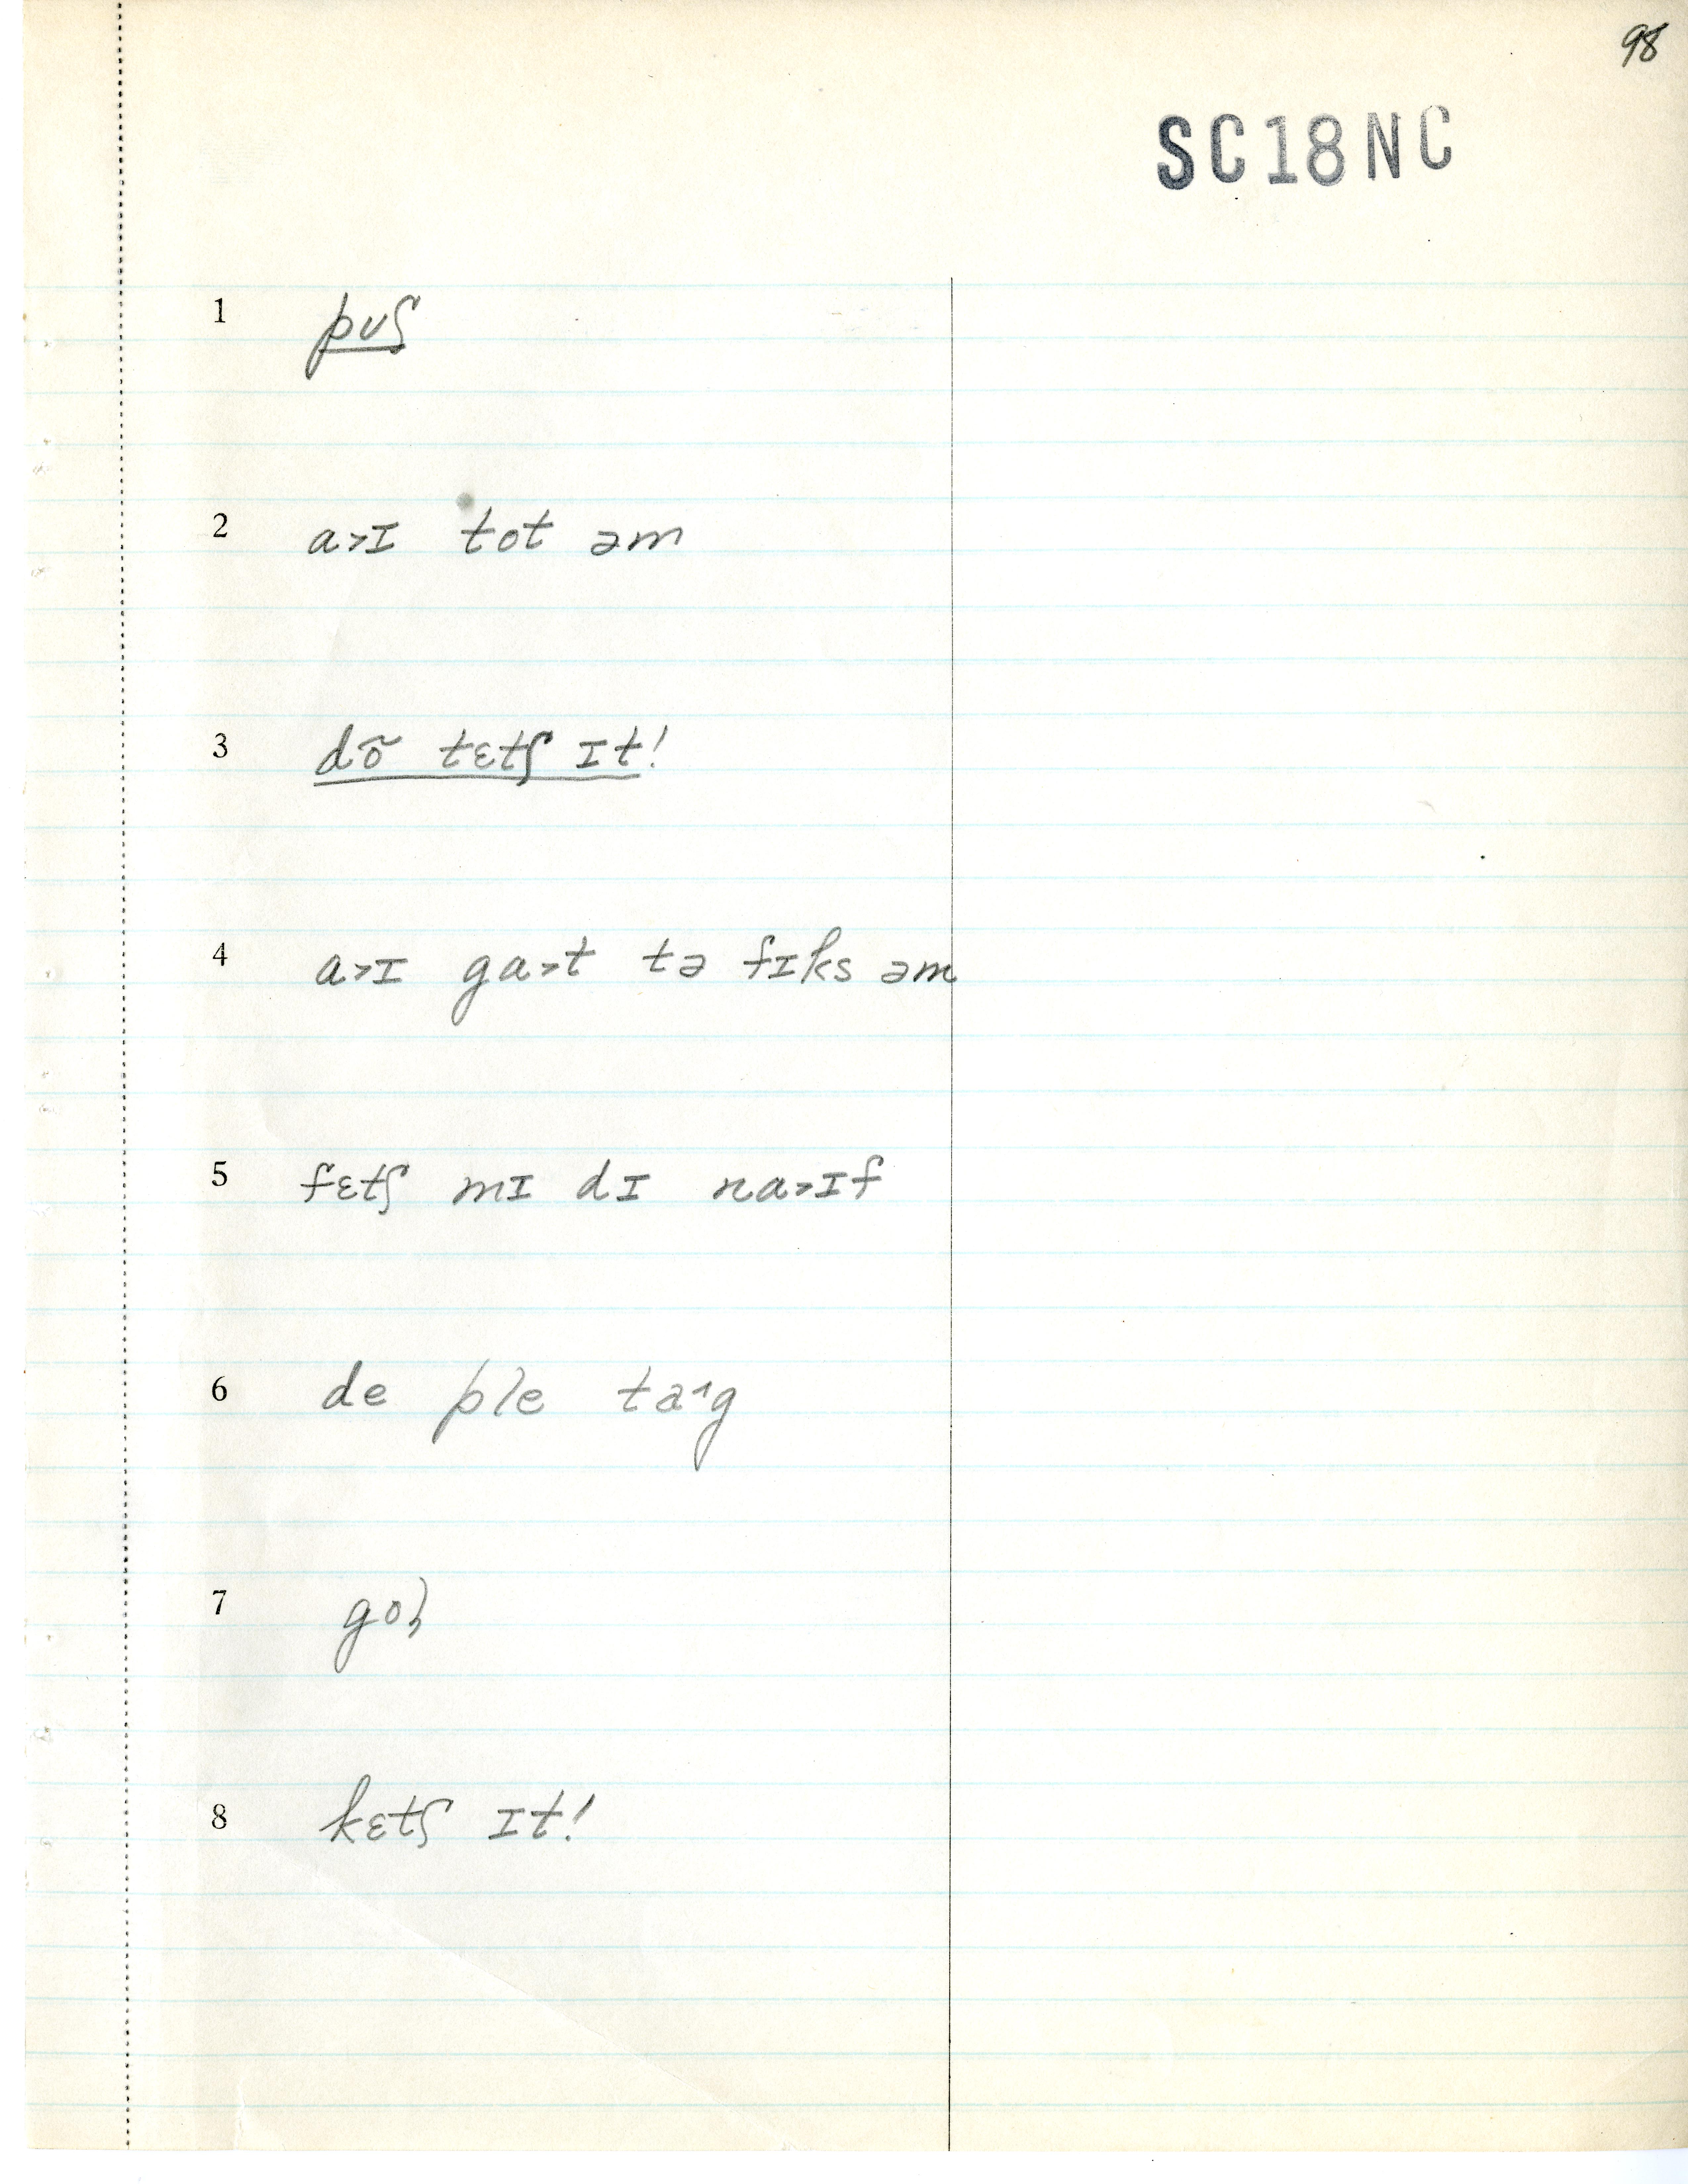 98
SC18NC
1 pʊʃ
2 a˃ɪ tot əm
3 dõ tɛtʃ ɪt!
4 a˃ɪ ga˃t tə fɪks əm
5 fɛtʃ mɪ dɪ na˃ɪf
6 de ple ta˄g
7
8 kɛtʃ ɪt!